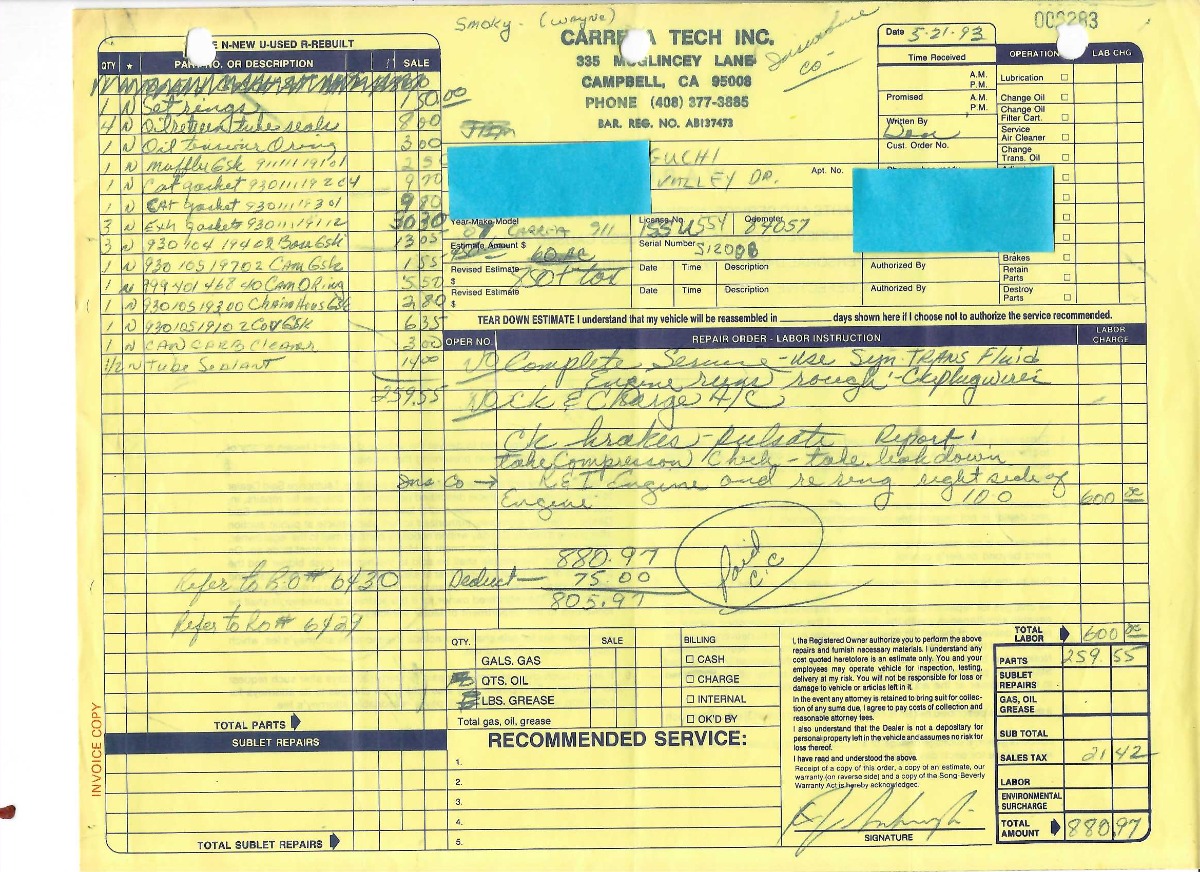 Smoky - (Wayne)
CARRERA TECH INC.
335 McGLINCEY LANE
CAMPBELL, CA 95008
PHONE (408) 377-3885
BAR. REG. NO. AB137473
Insurance
CO-
006283
Date 5-21-93
Time Received
A.M.
P.M.
Promised
A.M.
P.M.
Written By
Dan
Cust. Order No.
OPERATION LAB CHG
Lubrication
Change Oil
Change Oil
Filter Cart.
Service
Air Cleaner
Change
Trans. Oil
Brakes
Retain
Parts
Destroy
Parts
N-NEW U-USED R-REBUILT
QTY * PART NO. OR DESCRIPTION SALE
1 N Set rings 150.00
4 N Oil return tube seals 8 00
1 N Oil tensioner O ring 3 00
1 N Muffler Gsk 911 111 191 01
1 N Cat gasket 930 111 192 04 9 70
1 N CAT gasket 930 111 193 01 9 80
3 N Exh gaskets 930 111 191 12 30 30
3 N 930 104 194 02 Base Gsk 13 05
1 N 930 105 197 02 Cam Gsk 1 55
1 N 999 701 468 40 Cam O Ring 5 50
1 N 930 105 193 00 Chain Hous Gsk 2 80
1 N 930 105 191 02 Cov Gsk 6 35
1 N CAN CARB Cleaner 3 00
1/2 N Tube Sealant 14 00
259.55
GUCHI
VALLEY DR.
Apt. No.
Year-Make-Model
87 CARRERA 911
License No.
1SSU554
Odometer
84057
Estimate Amount $
60.00
Serial Number
S12008
Revised Estimate
$
850 + tax
Date Time Description Authorized By
Revised Estimate
$
Date Time Description Authorized By
TEAR DOWN ESTIMATE I understand that my vehicle will be reassembled in ________ days shown here if I choose not to authorize the service recommended.
OPER NO. REPAIR ORDER - LABOR INSTRUCTION LABOR CHARGE
NO Complete Service - use Syn. TRANS Fluid
Engine runs rough - Ck plug wires
NO Ck & Charge A/C
Ck brakes - Pulsate Report!
take Compression Check - take leakdown
Ins Co → R & I Engine and re ring right side of
Engine 10.0 600 00
880.97
Deduct — 75.00
805.97
Paid
C.C
Refer to R.O# 6430
Refer to Ro# 6427
TOTAL PARTS
SUBLET REPAIRS
TOTAL SUBLET REPAIRS
INVOICE COPY
QTY. SALE BILLING
GALS. GAS CASH
QTS. OIL CHARGE
LBS. GREASE INTERNAL
Total gas, oil, grease OK'D BY
RECOMMENDED SERVICE:
1.
2.
3.
4.
5.
I, the Registered Owner authorize you to perform the above
repairs and furnish necessary materials. I understand any
cost quoted heretofore is an estimate only. You and your
employees may operate vehicle for inspection, testing,
delivery at my risk. You will not be responsible for loss or
damage to vehicle or articles left in it.
In the event any attorney is retained to bring suit for collec-
tion of any sums due, I agree to pay costs of collection and
reasonable attorney fees.
I also understand that the Dealer is not a depositary for
personal property left in the vehicle and assumes no risk for
loss thereof.
I have read and understood the above.
Receipt of a copy of this order, a copy of an estimate, our
warranty (on reverse side) and a copy of the Song-Beverly
Warranty Act is hereby acknowledged.
SIGNATURE
TOTAL
LABOR 600 00
PARTS 259.55
SUBLET
REPAIRS
GAS, OIL
GREASE
SUB TOTAL
SALES TAX 21 42
LABOR
ENVIRONMENTAL
SURCHARGE
TOTAL
AMOUNT 880.97